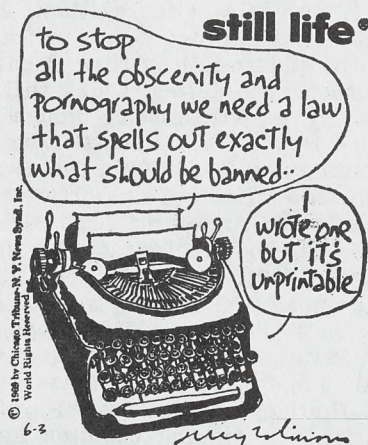 still life®
to stop
all the obscenity and
pornography we need a law
that spells out exactly
what should be banned..
I
wrote one
but it's
unprintable
© 1969 by Chicago Tribune-N. Y. News Synd., Inc.
World Rights Reserved
6-3
jerry robinson